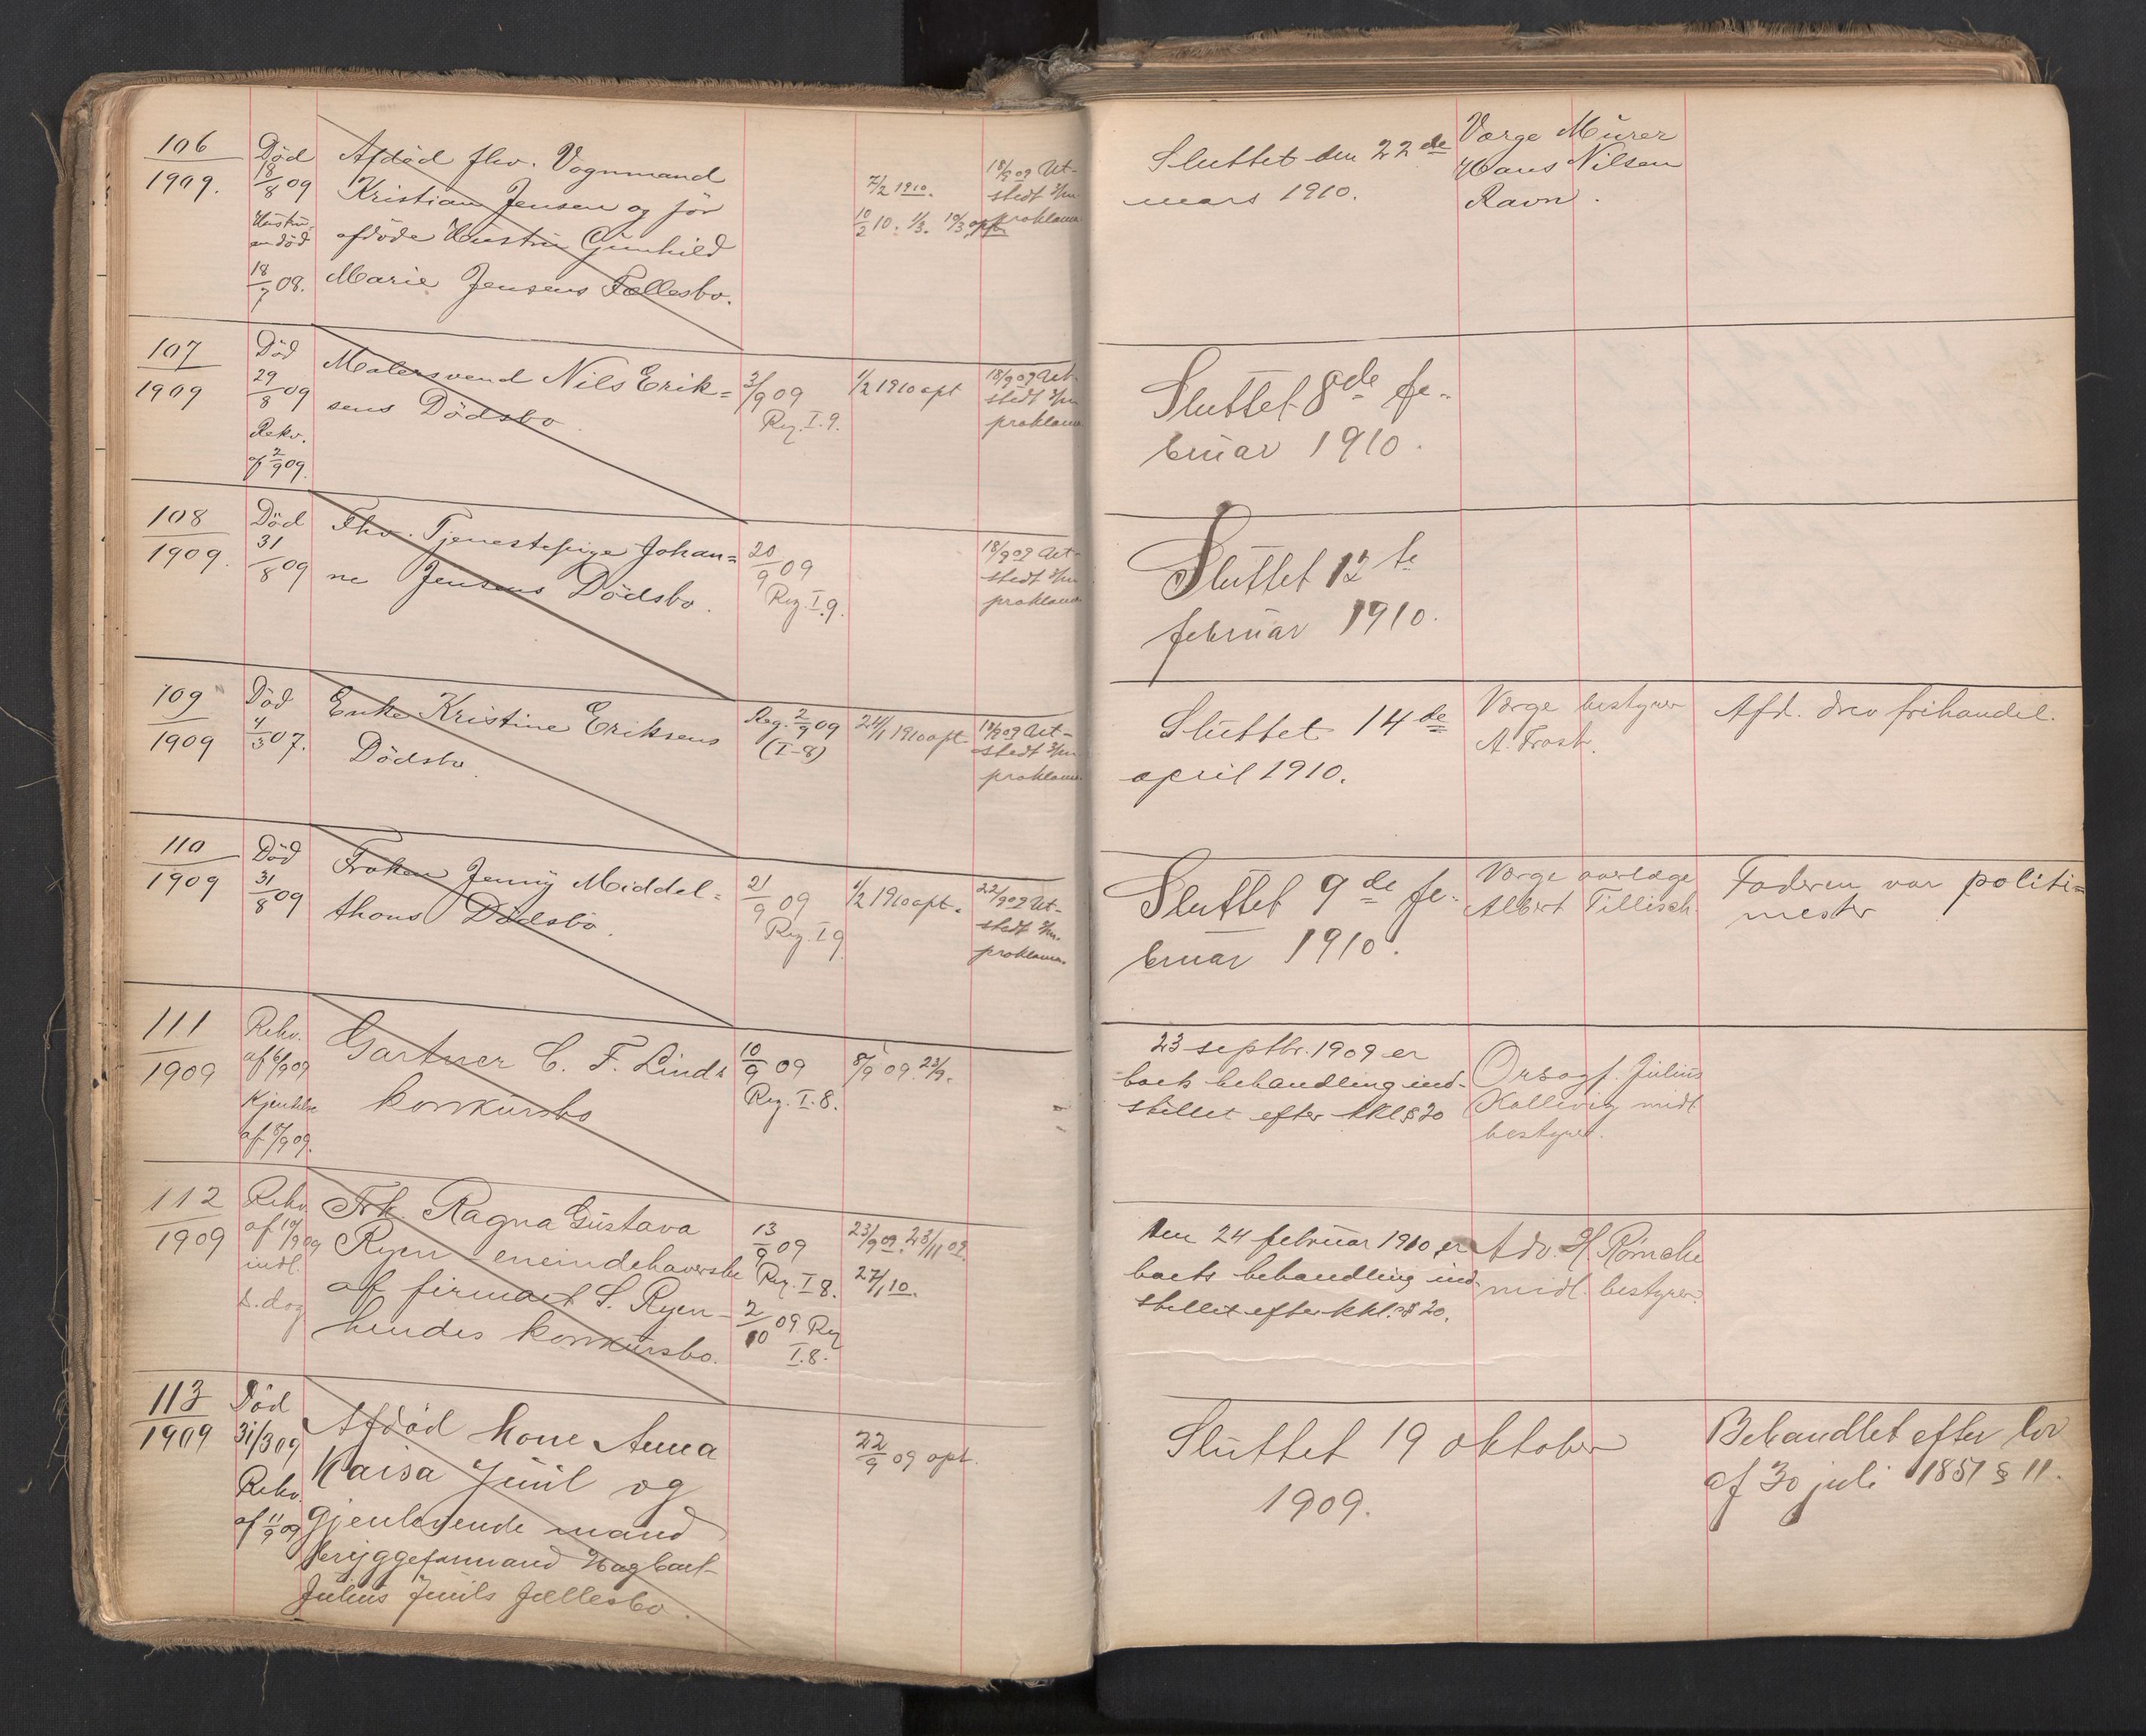 106
1909.
Död
18/8 09
Hustru-
en död
18/7 08.
Afdöd fhv. Vognmand
Kristian Jensen og för
afdöde Hustru Gunhild
Marie Jensens Fællesbo.
7/2 1910.
10/2 10. 1/3. 10/3 opt
18/9 09 Ut-
stedt
proklama
Sluttet den 22de
mars 1910.
Værge Murer
Hans Nilsen
Ravn.
107
1909
Död
29/8 09
Rekv.
af 2/9 09.
Malersvend Nils Erik=
sens Dödsbo.
3/9 09
Reg. I. 9.
1/2 1910 opt
18/9 09 Ut-
stedt
proklama
Sluttet 8de fe-
bruar 1910.
108
1909.
Död
31/8 09
Fhv. Tjenestepige Johan=
ne Jensens Dödsbo.
20/9 09
Reg. I. 9.
18/9 09 Ut-
stedt
proklama
Sluttet 12te
februar 1910.
109
1909
Död
4/3 07.
Enke Kristine Eriksens
Dödsbo.
Reg. 2/9 09
(I-8)
24/1 1910 opt.
18/9 09 Ut-
stedt
proklama
Sluttet 14de
april 1910.
Værge bestyrer
A. Frost.
Afd. drev frihandel.
110
1909
Död
31/8 09
Frøken Jenny Middel=
thons Dödsbo.
21/9 09
Reg. I 9.
1/2 1910 opt.
22/9 09 Ut-
stedt
proklama
Sluttet 9de fe-
bruar 1910.
Værge overlæge
Albert Tillisch.
Faderen var politi=
mester
111
1909
Rekv.
af 6/9 09
Kjendelse
af 8/9 09.
Gartner C. F. Linds
konkursbo
10/9 09
Reg. I. 8.
8/9 09. 23/9.
23 septbr. 1909 er
boets behandling ind-
stillet efter kkl § 20
Orsagf. Julius
Kallevig midl
bestyrer.
112
1909
Rekv
af 10/9 09
indl.
s. dag
Frk. Ragna Gustava
Ryen eneindehaverske
af firmaet S. Ryen-
hendes konkursbo.
13/9 09
Reg. I 8.
2/10 09 Reg
I. 8.
23/9 09. 23/11 09.
27/1 10.
Den 24 februar 1910 er
boets behandling ind-
stillet efter kkl. § 20.
Adv. H. Rømcke
midl. bestyrer.
113
1909
Död
31/3 09
Rekv.
af 11/9 09
Afdöd kone Anna
Kaisa Juul og
gjenlevende mand
bryggeformand Hagbart
Julius Juuls fællesbo.
22/9 09 opt.
Sluttet 19 oktober
1909.
Behandlet efter lov
af 30 juli 1851 § 11.